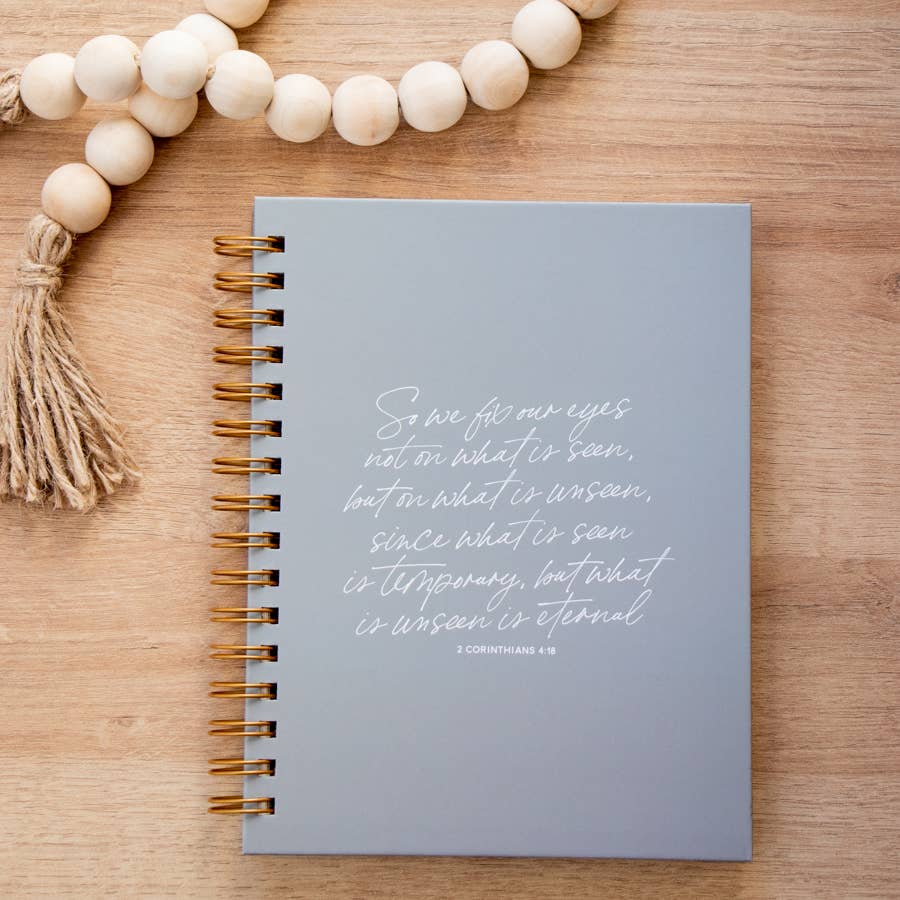 So we fix our eyes
not on what is seen,
but on what is unseen,
since what is seen
is temporary, but what
is unseen is eternal
2 CORINTHIANS 4:18